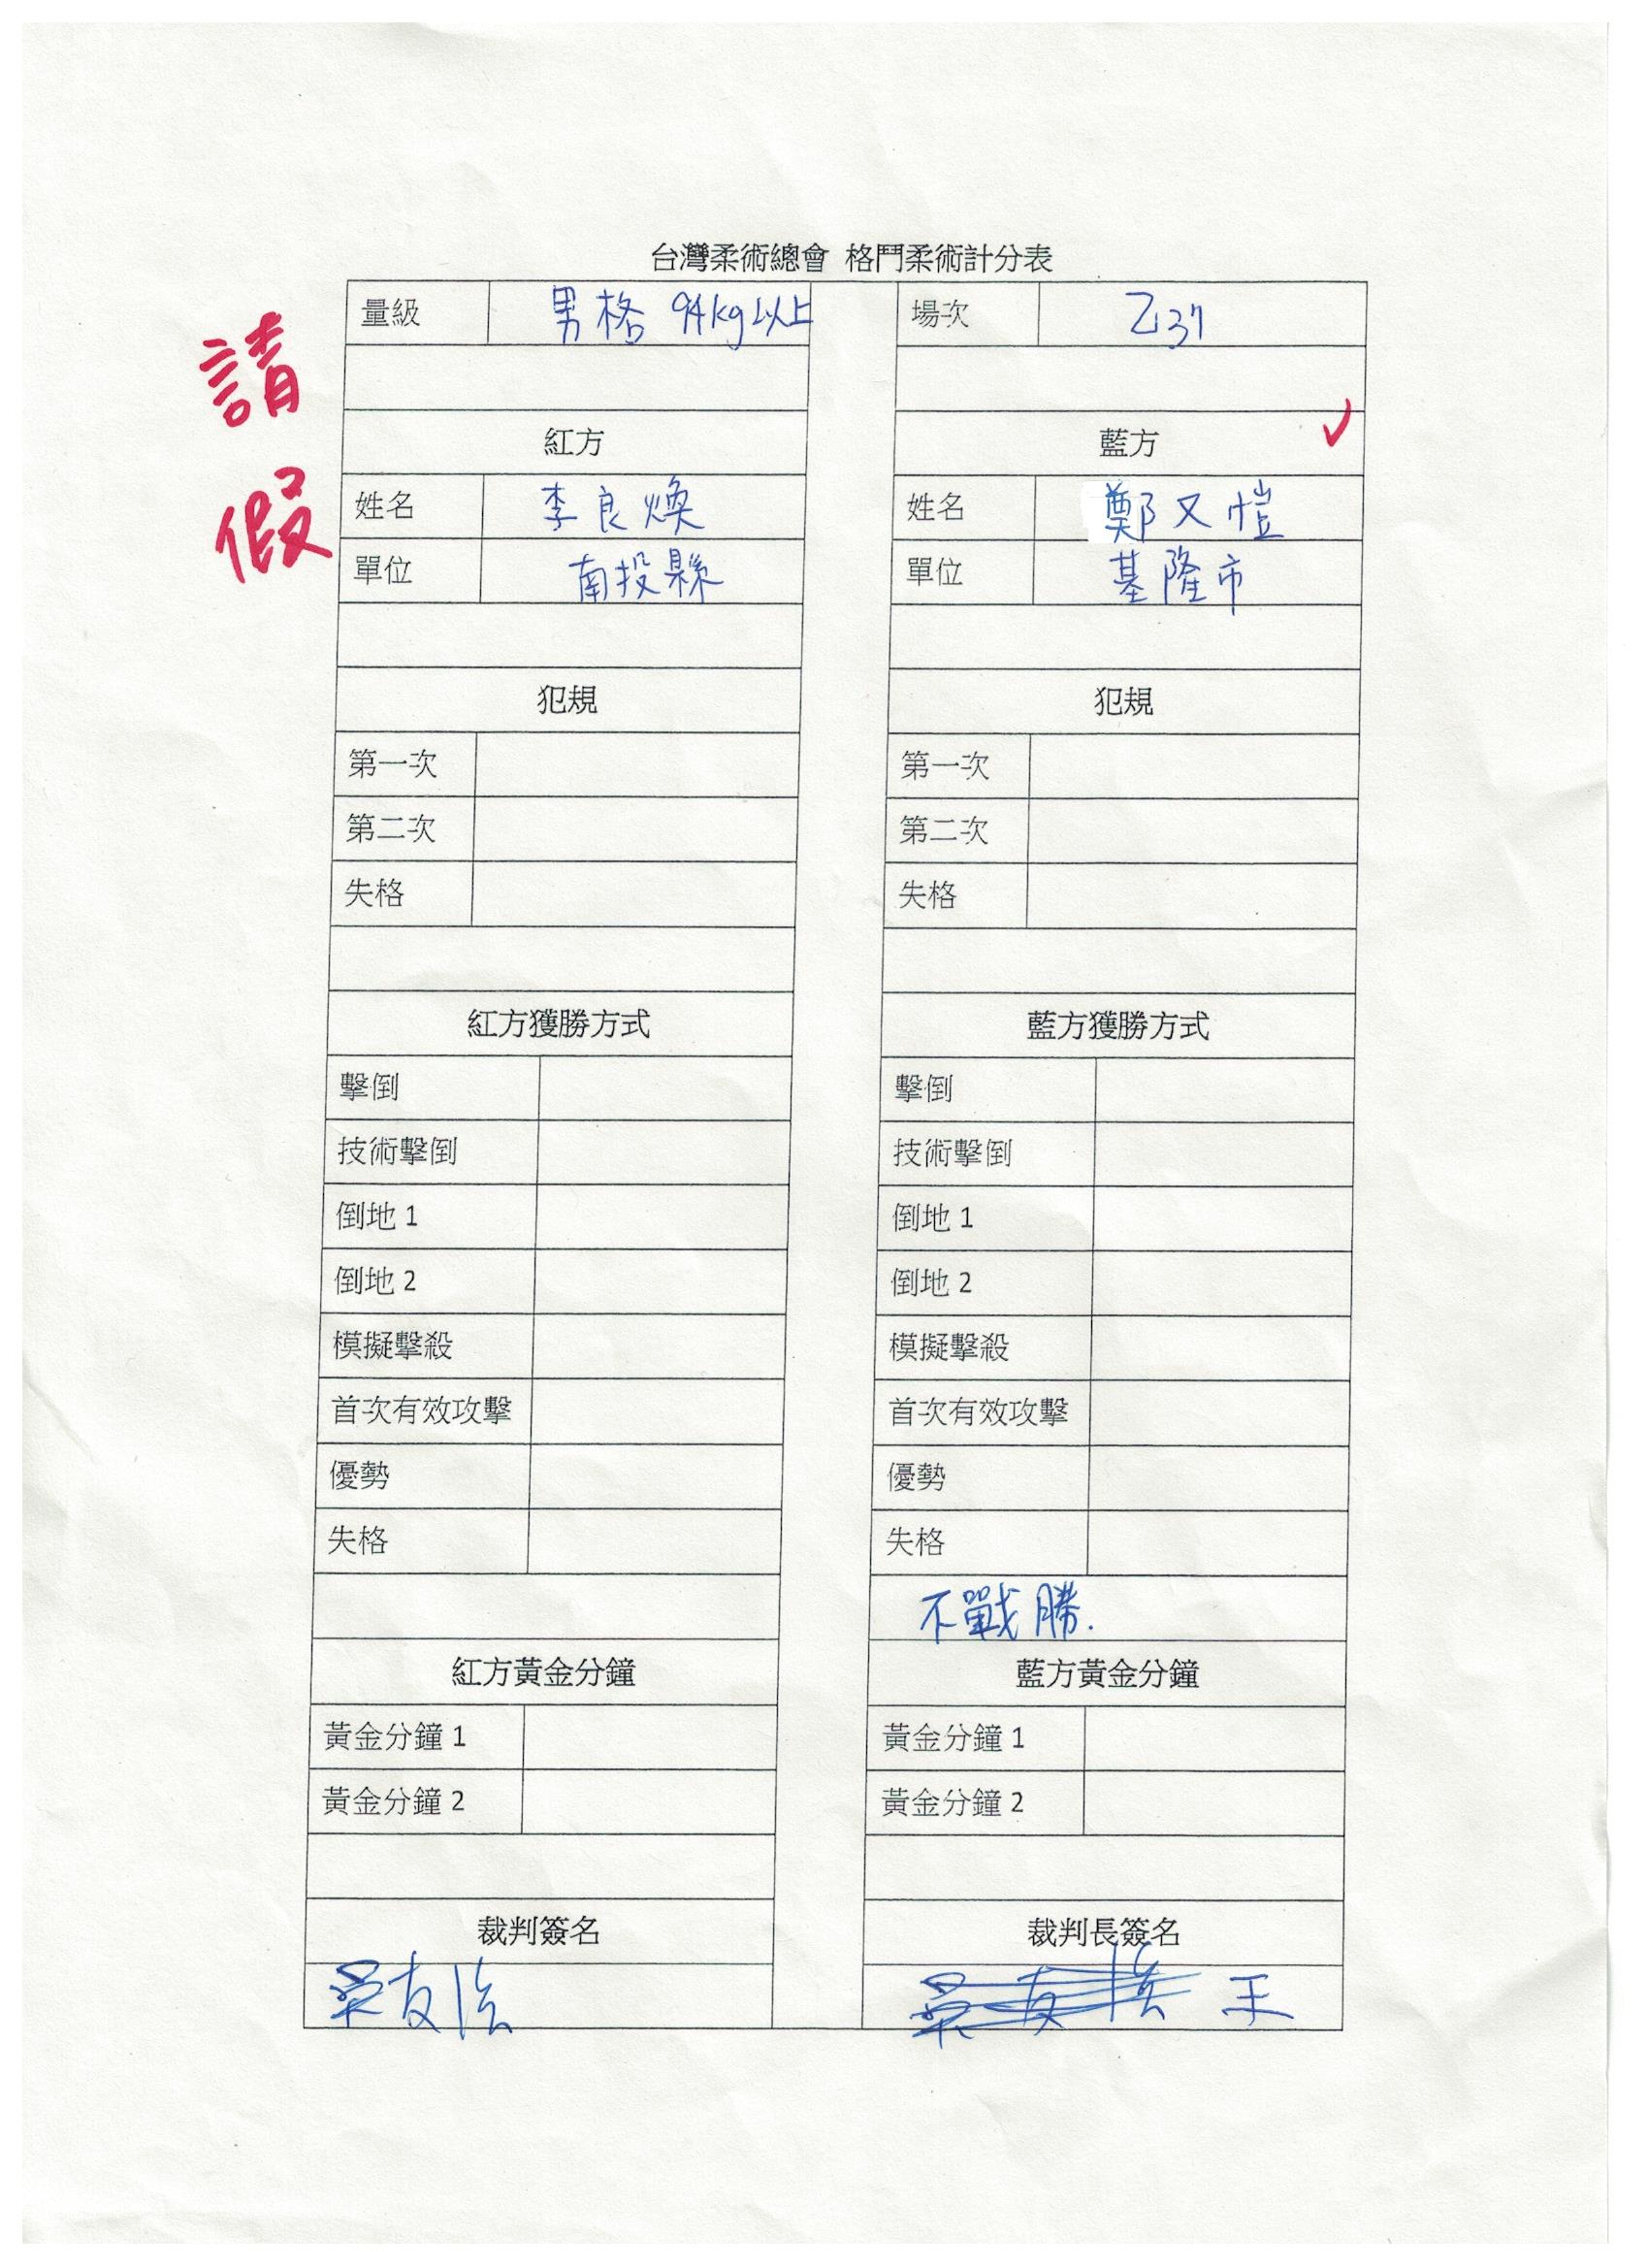 台灣柔術總會 格鬥柔術計分表
量級 男格 94kg以上 場次 乙37
請假
紅方 藍方 ✓
姓名 李良煥 姓名 鄭又愷
單位 南投縣 單位 基隆市
犯規 犯規
第一次 第一次
第二次 第二次
失格 失格
紅方獲勝方式 藍方獲勝方式
擊倒 擊倒
技術擊倒 技術擊倒
倒地 1 倒地 1
倒地 2 倒地 2
模擬擊殺 模擬擊殺
首次有效攻擊 首次有效攻擊
優勢 優勢
失格 失格
不戰勝.
紅方黃金分鐘 藍方黃金分鐘
黃金分鐘 1 黃金分鐘 1
黃金分鐘 2 黃金分鐘 2
裁判簽名 裁判長簽名
友 王